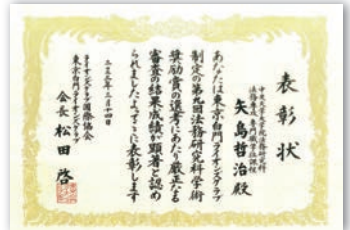 表彰状
中央大学大学院法務研究科
法務専攻専門職学位課程
矢島哲治殿
あなたは東京白門ライオンズクラブ
制定の第九回法務研究科学術
奨励賞の選考にあたり厳正なる
審査の結果成績が顕著と認め
られましたよってここに表彰します
ライオンズクラブ国際協会
東京白門ライオンズクラブ
会長 松田啓